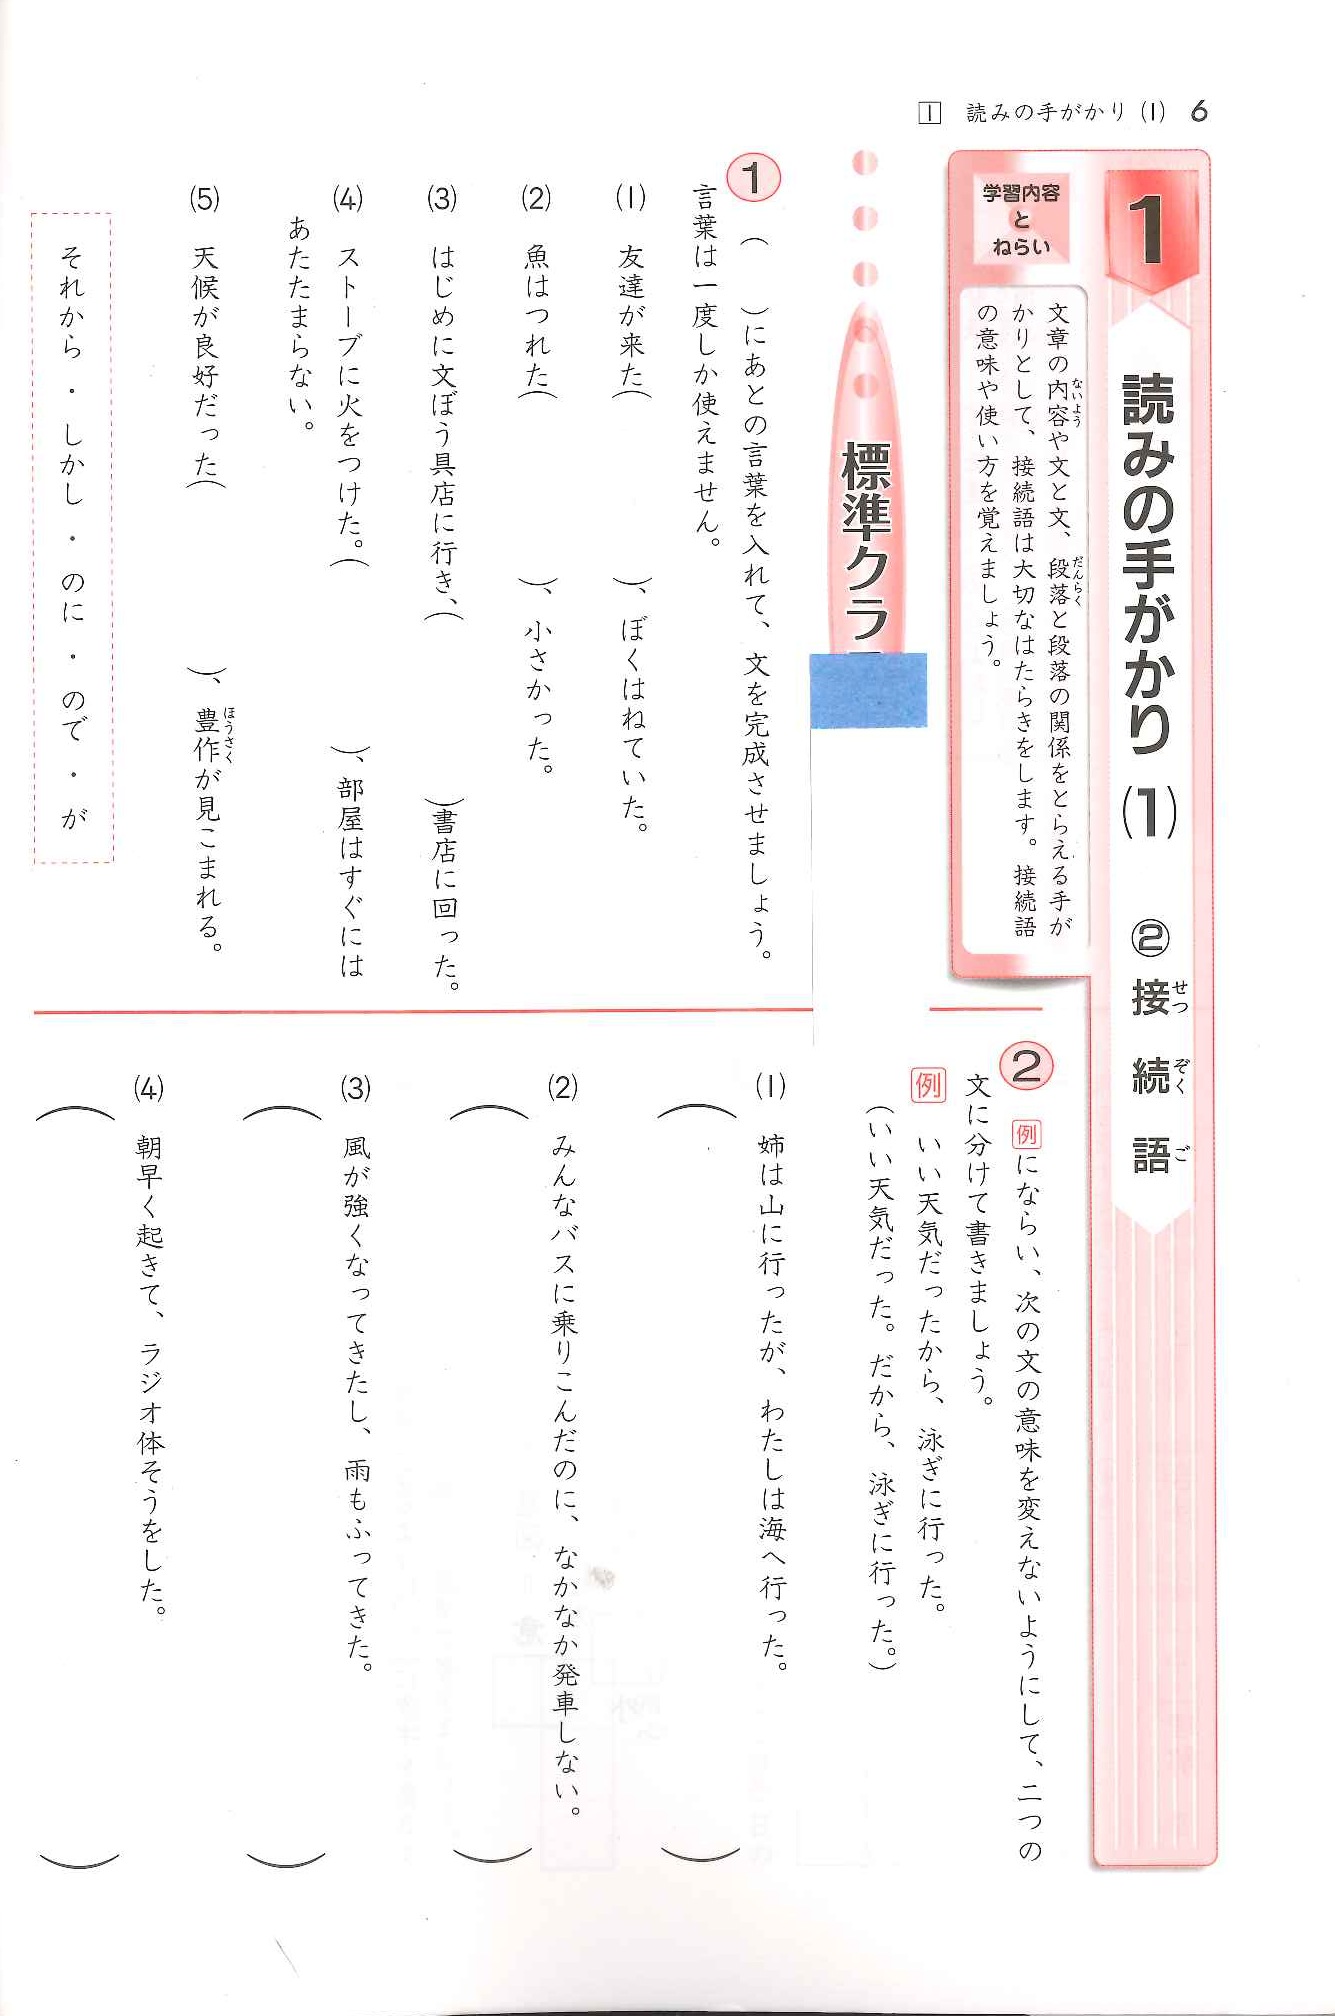 1 読みの手がかり(1) 6
1 読みの手がかり(1) ②接続語
せつ ぞく ご
学習内容
と
ねらい
文章の内容や文と文、段落と段落の関係をとらえる手が
ないよう だんらく
かりとして、接続語は大切なはたらきをします。接続語
の意味や使い方を覚えましょう。
標準クラ
1 ( )にあとの言葉を入れて、文を完成させましょう。
言葉は一度しか使えません。
(1) 友達が来た( )、ぼくはねていた。
(2) 魚はつれた( )、小さかった。
(3) はじめに文ぼう具店に行き、( )書店に回った。
(4) ストーブに火をつけた。( )、部屋はすぐには
あたたまらない。
(5) 天候が良好だった( )、豊作が見こまれる。
ほうさく
それから・しかし・のに・ので・が
2 例にならい、次の文の意味を変えないようにして、二つの
文に分けて書きましょう。
例 いい天気だったから、泳ぎに行った。
(いい天気だった。だから、泳ぎに行った。)
(1) 姉は山に行ったが、わたしは海へ行った。
( )
(2) みんなバスに乗りこんだのに、なかなか発車しない。
( )
(3) 風が強くなってきたし、雨もふってきた。
( )
(4) 朝早く起きて、ラジオ体そうをした。
( )